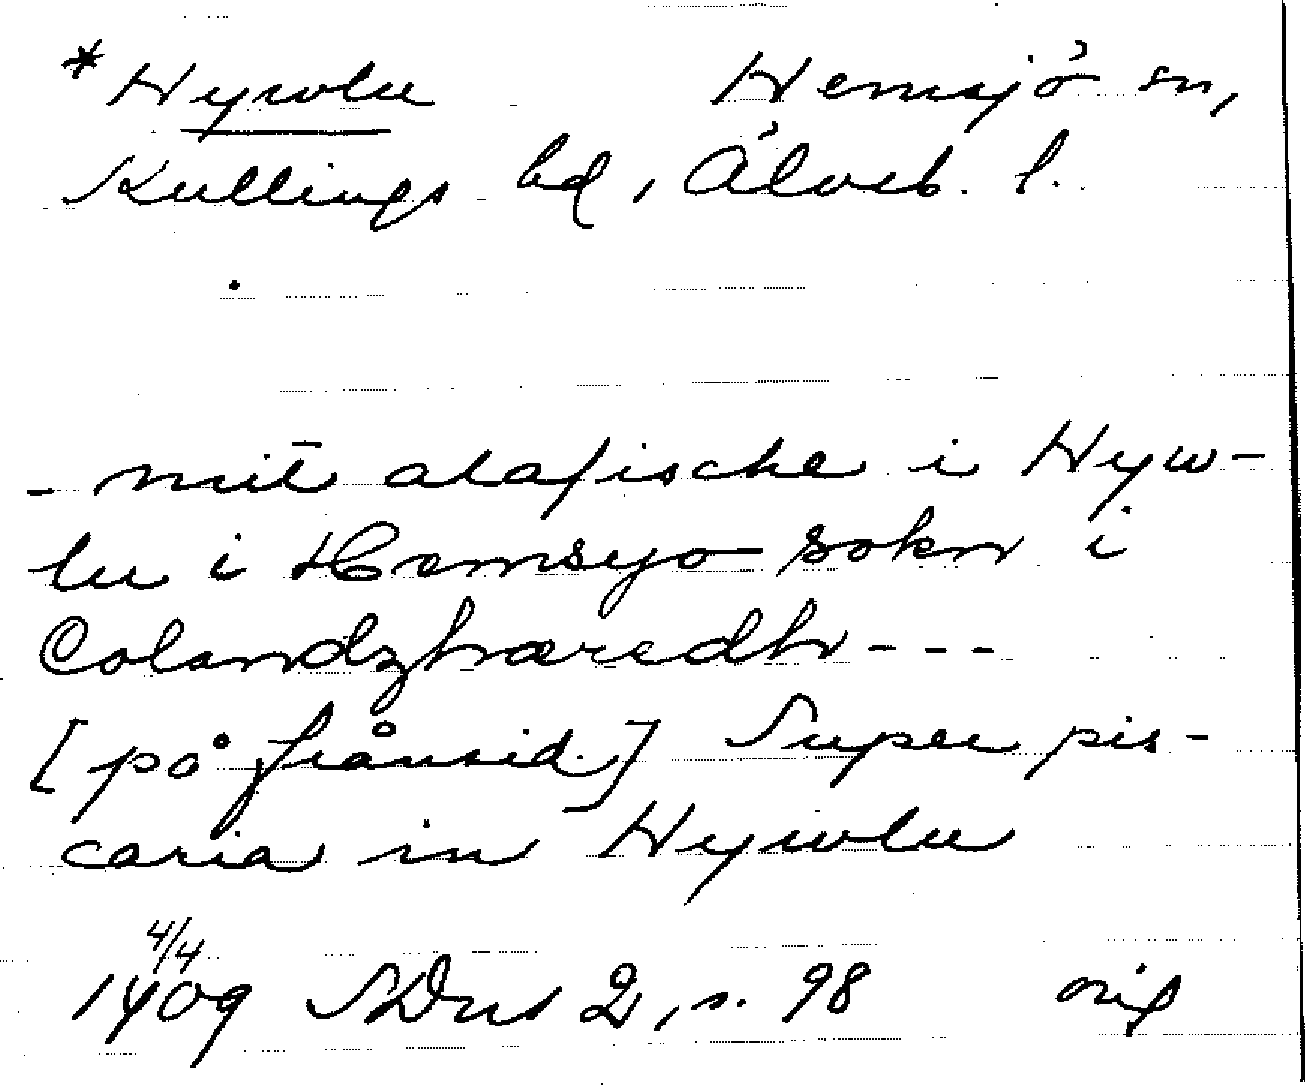 * Hywlu Hemsjö sn,
Kullings hd, Älvsb. l.
- mit̄ alafische i Hyw-
lu i Hæmsyo sokn i
Colandzhæredh ---
[på frånsid.] Super pis-
caria in Hywlu
4/4
1409 SDns 2, s. 98 orig